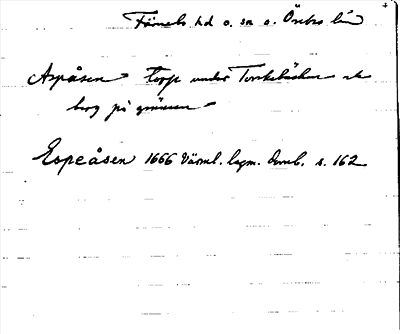 hd o. sn o. Örebro län
Aspåsen torp under
berg på gränsen
Espeåsen 1666 Värml. lagm. domb. s. 162